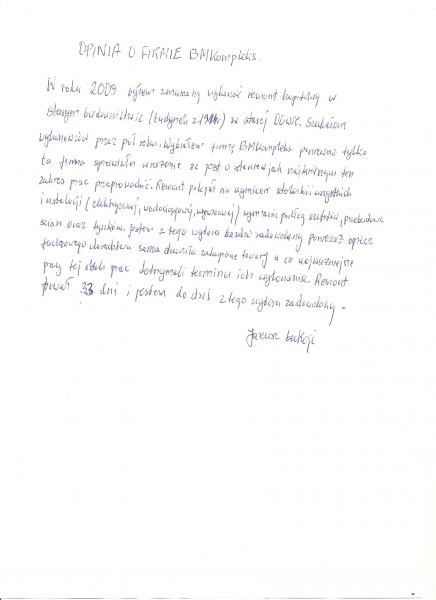 OPINIA O FIRMIE BMKompleks.
W roku 2009 byłem zmuszony wykonać remont kapitalny w
starym budownictwie (budynek z) w starej Oliwie. Szukałem
wykonawców przez pół roku. Wybrałem firmę BMKompleks ponieważ tylko
ta firma sprawiała wrażenie że jest w stanie jak najkrótszym ten
zakres prac przeprowadzić. Remont polegał na wymianie stolarki wszystkich
instalacji (elektrycznej, wodociągowej, ) wymianie podłóg sufitów, przebudowie
ścian oraz tynków. Jestem z tego wyboru bardzo zadowolony ponieważ oprócz
fachowego doradztwa sama dowoziła zakupione towary a co najważniejsze
przy tej skali prac dotrzymali terminu ich wykonania. Remont
trwał 33 dni i jestem do dziś z tego wyboru zadowolony.
Janusz